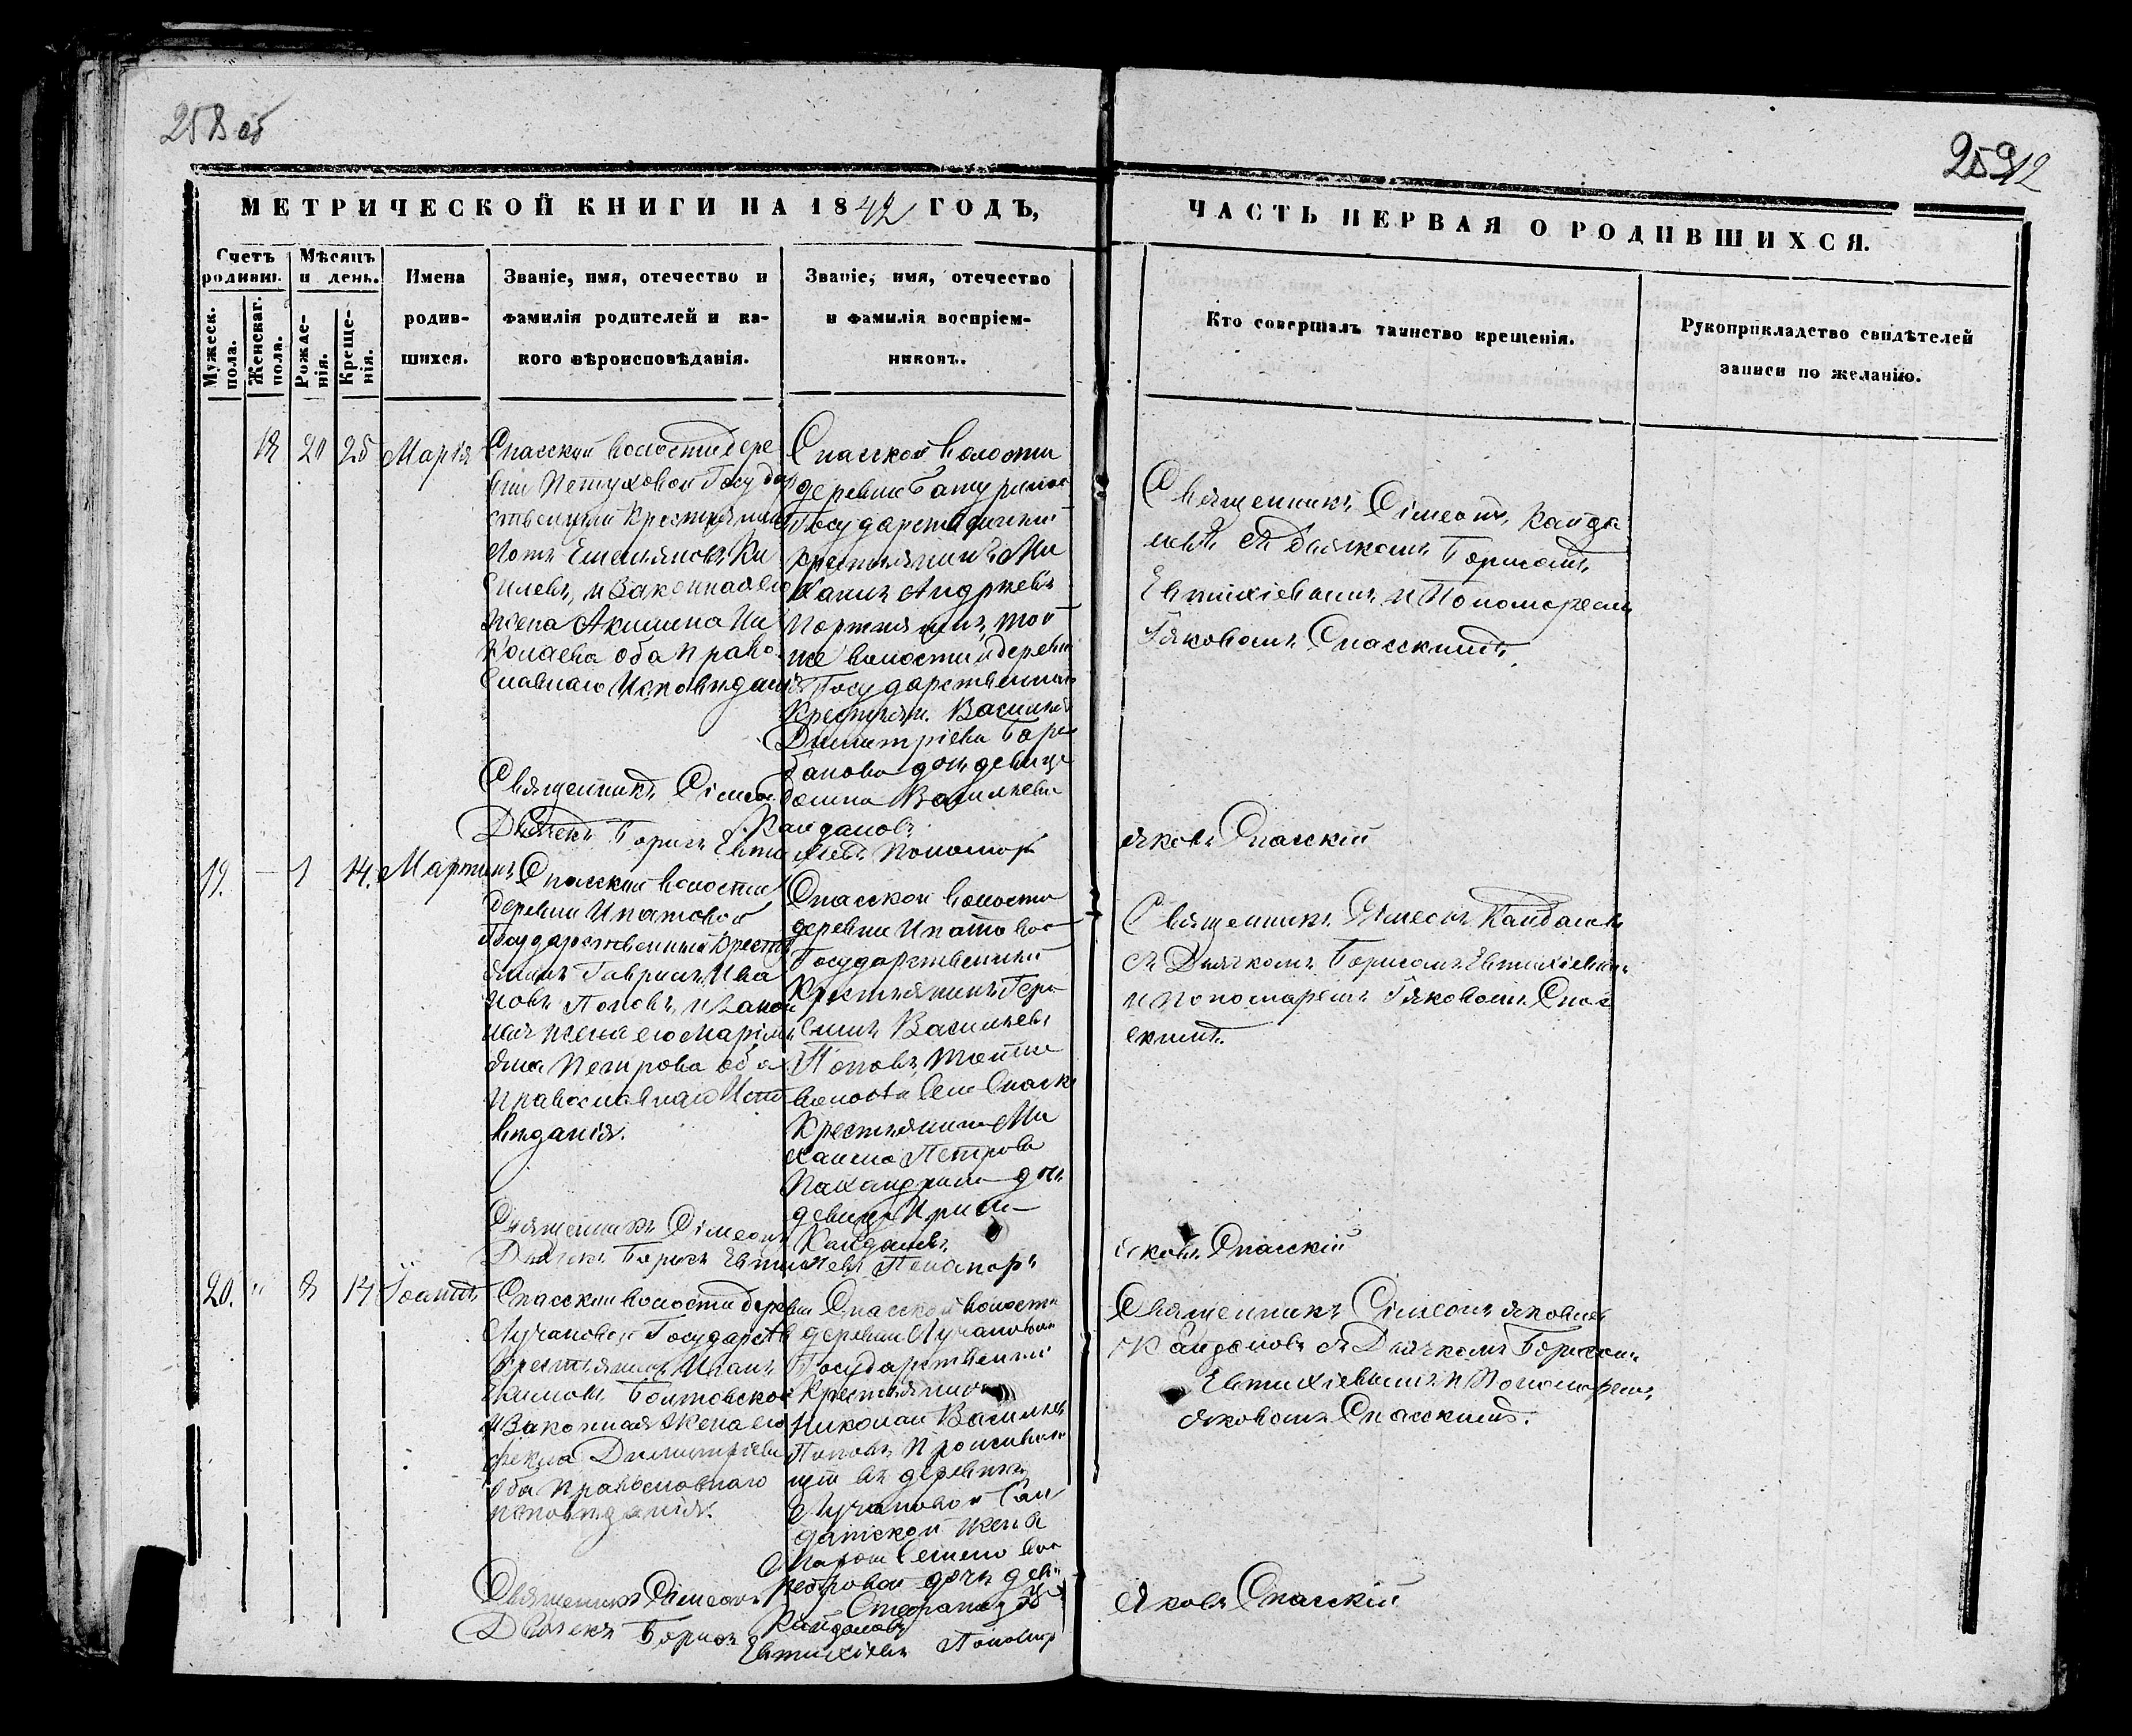 258 об
259
12
МЕТРИЧЕСКОЙ КНИГИ НА 1842 ГОДЪ,
ЧАСТЬ ПЕРВАЯ О РОДИВШИХСЯ.
Счетъ родивш.
Мужеск. пола.
Женскаг. поля.
Мѣсяцъ и день.
Рожде-
нія.
Креще-
нія.
Имена
родив-
шихся.
Званіе, имя, отечество и
фамилія родителей и ка-
кого вѣроисповѣданія.
Званіе, имя, отечество
и фамилія воспріем-
никовъ.
Кто совершалъ таинство крещенія.
Рукоприкладство свидѣтелей
записи по желанію.
18 20 25 Марія
Спасской волости дере
вни Петуховой Государ
ственный Крестьянинъ
Емельяновъ Ки
селевъ, и Законная его
жена Акилина Ни
колаева оба право
славнаго Исповѣданія
Спасской волости
деревни Батуриной
Государственный
крестьянинъ Ми
хаилъ Андреевъ
Портнягинъ, той
же волости и деревни
Государственнаго
Крестьян. Василья
Димитріева Бара
банова дочь девица
Васильева
Священникъ Сімеонъ Кайда
новъ съ Дьячкомъ Борисомъ
Евтихіевымъ и Пономаремъ
Іяковомъ Спасскимъ
Священникъ Сімеонъ Кайдановъ
Дьячекъ Борисъ Евтихіевъ Пономарь
яковъ Спасскій
19. — 1 14. Мартинъ
Спасской волости
деревни Ипатовой
Государственный Кресть
янинъ Гаврилъ Ива
новъ Поповъ, и Закон
ная жена его Маріам
яна Петрова оба
православнаго Испо
вѣданія.
Спасской волости
деревни Ипатовой
Государственный
Крестьянинъ Гера
симъ Васильевъ
Поповъ, той же
волости села Спаска
Крестьянина Ми
хаила Петрова
дочь
девица Ирина
Священникъ Сімеонъ Кайдановъ
съ Дьячкомъ Борисомъ Евтихіевым
и Пономаремъ Іяковомъ Спас
скимъ.
Священникъ Сімеонъ Кайдановъ
Дьячекъ Борисъ Евтихіевъ Пономарь
яковъ Спасскій
20. " 8 14 Іоаннъ
Спасской волости деревни
Лучановой Государств
крестьянинъ Иванъ
Екимовъ Болтовской
и Законная жена его
Фекла Димитріева
оба православнаго
исповѣданія.
Спасской волости
деревни Лучановой
Государственный
Крестьянинъ
Николай Васильев
Поповъ проживаю
щей въ деревне
Лучановой Сол
датской жены
Семено
Петровой дочь деви
ца Стефанида
Священникъ Сімеонъ яковлев
Кайдановъ съ Дьячкомъ Борисомъ
Евтихіевымъ и Пономаремъ
яковомъ Спасскимъ.
Священникъ Сімеонъ Кайдановъ
Дьячекъ Борисъ Евтихіевъ Пономар
яковъ Спасскій